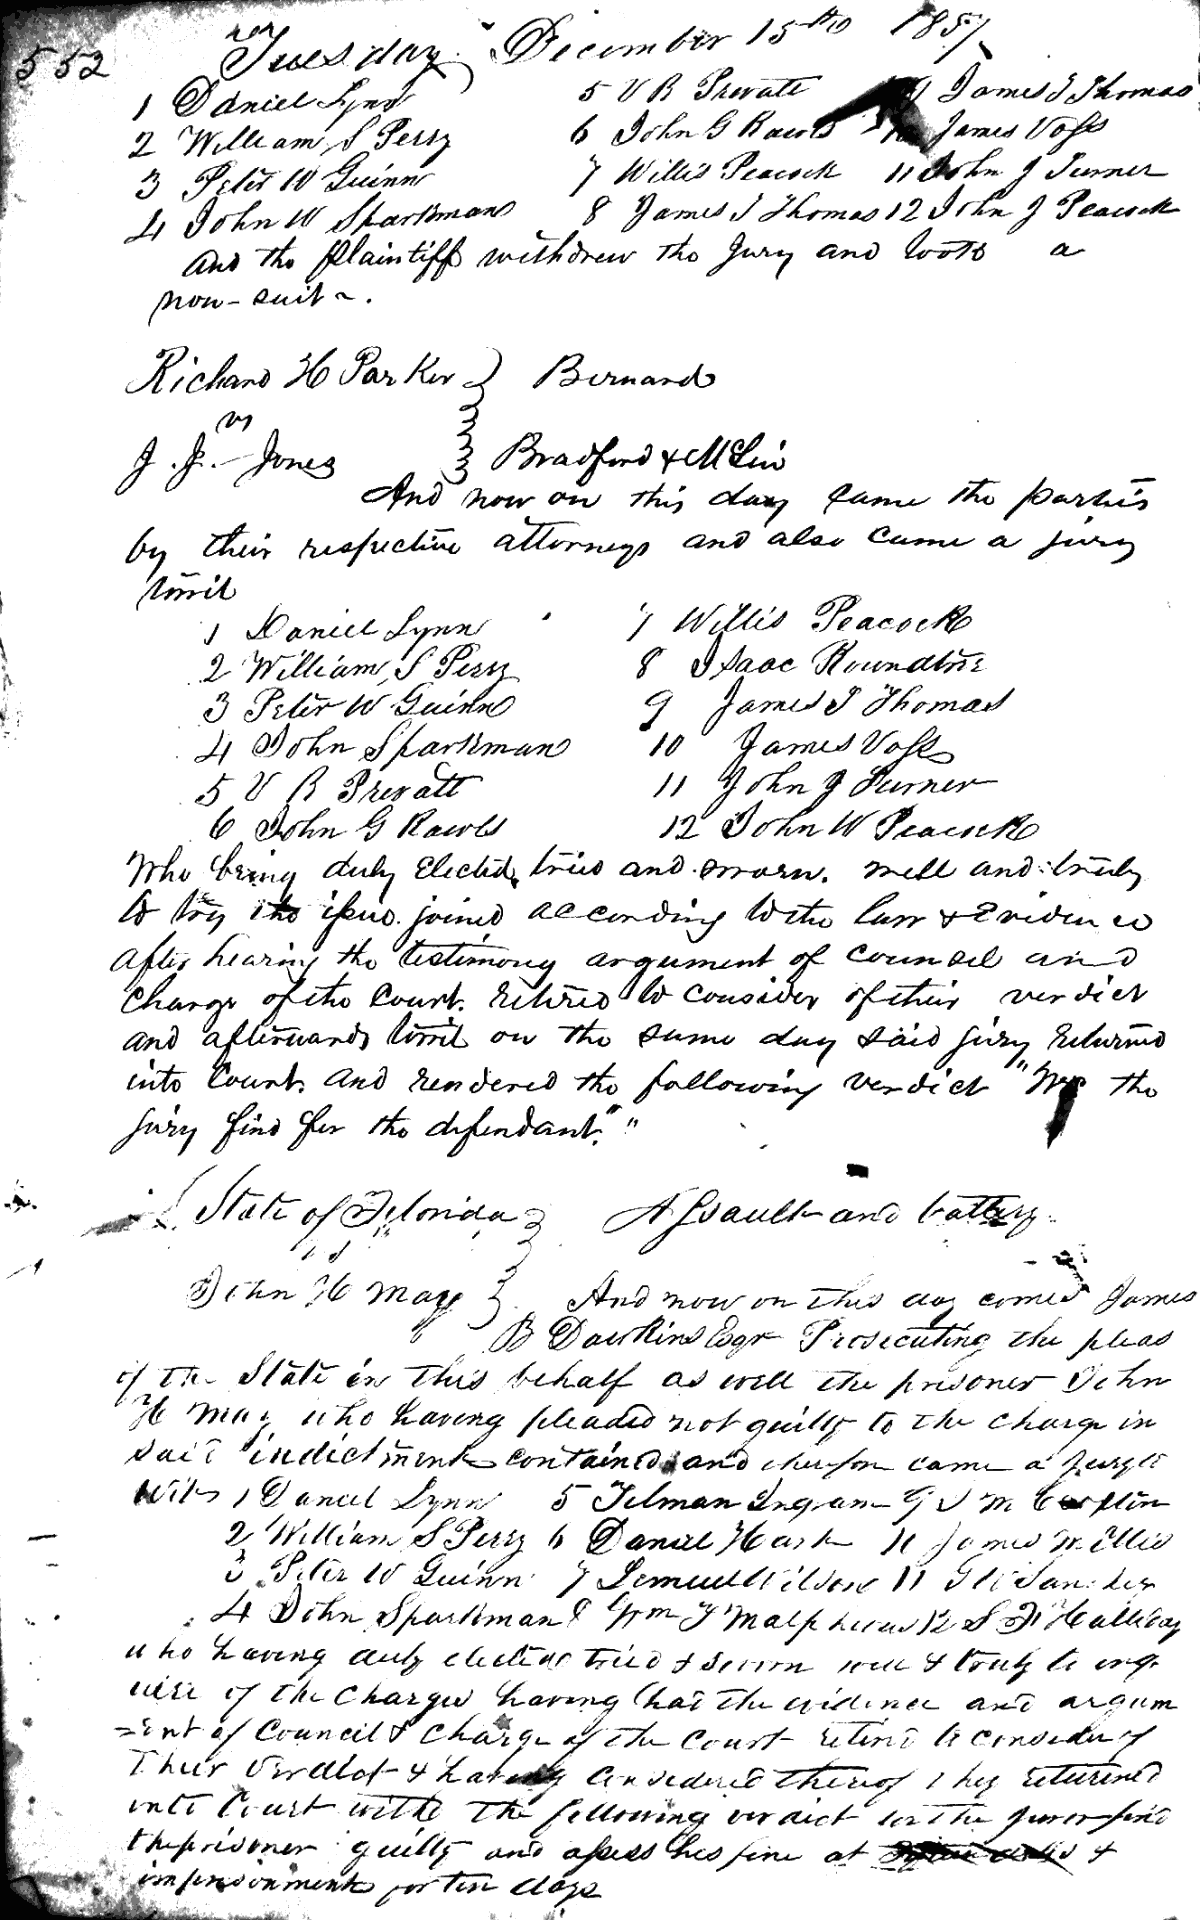 552
Tuesday, December 15th 1857
1 Daniel Lynn 5 V R Prevatt 9 James T Thomas
2 William S Perry 6 John G Rawls 10 James Voss
3 Peter W Guinn 7 Willis Peacock 11 John J Turner
4 John W Sparkman 8 James T Thomas 12 John J Peacock
and the Plaintiff withdrew the Jury and took a
non-suit.
Richard H Parker Bernard
vs
J. J. Jones Bradford & McLin
And now on this day came the parties
by their respective attorneys and also came a jury
towit
1 Daniel Lynn 7 Willis Peacock
2 William S Perry 8 Isaac Roundtree
3 Peter W Guinn 9 James T Thomas
4 John Sparkman 10 James Voss
5 V R Prevatt 11 John J Turner
6 John G Rawls 12 John W Peacock
Who being duly Elected, tried and sworn. well and truly
to try the issue joined according to the law & Evidence
after hearing the testimony argument of counsel and
charge of the Court. retired to consider of their verdict
and afterwards towit on the same day said jury returned
into Court. and rendered the following verdict "We the
jury find for the defendant."
State of Florida Assault and battery
vs
John H May And now on this day comes James
B Dawkins Esqr Prosecuting the pleas
of the State in this behalf as well the prisoner John
H May who having pleaded not guilty to the charge in
said indictment contained and came a jury to
wit 1 Daniel Lynn 5 Tilman Ingram 9 J M
2 William S Perry 6 Daniel 11 James Willis
3 Peter W Guinn 7 Lemuel Wilson 11 G W
4 John Sparkman 8 Wm J 12 S
who having duly elected tried & sworn well & truly to enq
uire of the charges having had the evidence and argum
=ent of Council & charge of the Court retired to consider of
Their Verdict & having considered thereof they returned
into Court with the following verdict the juror find
the prisoner guilty and assess his fine at &
imprisonment for ten days